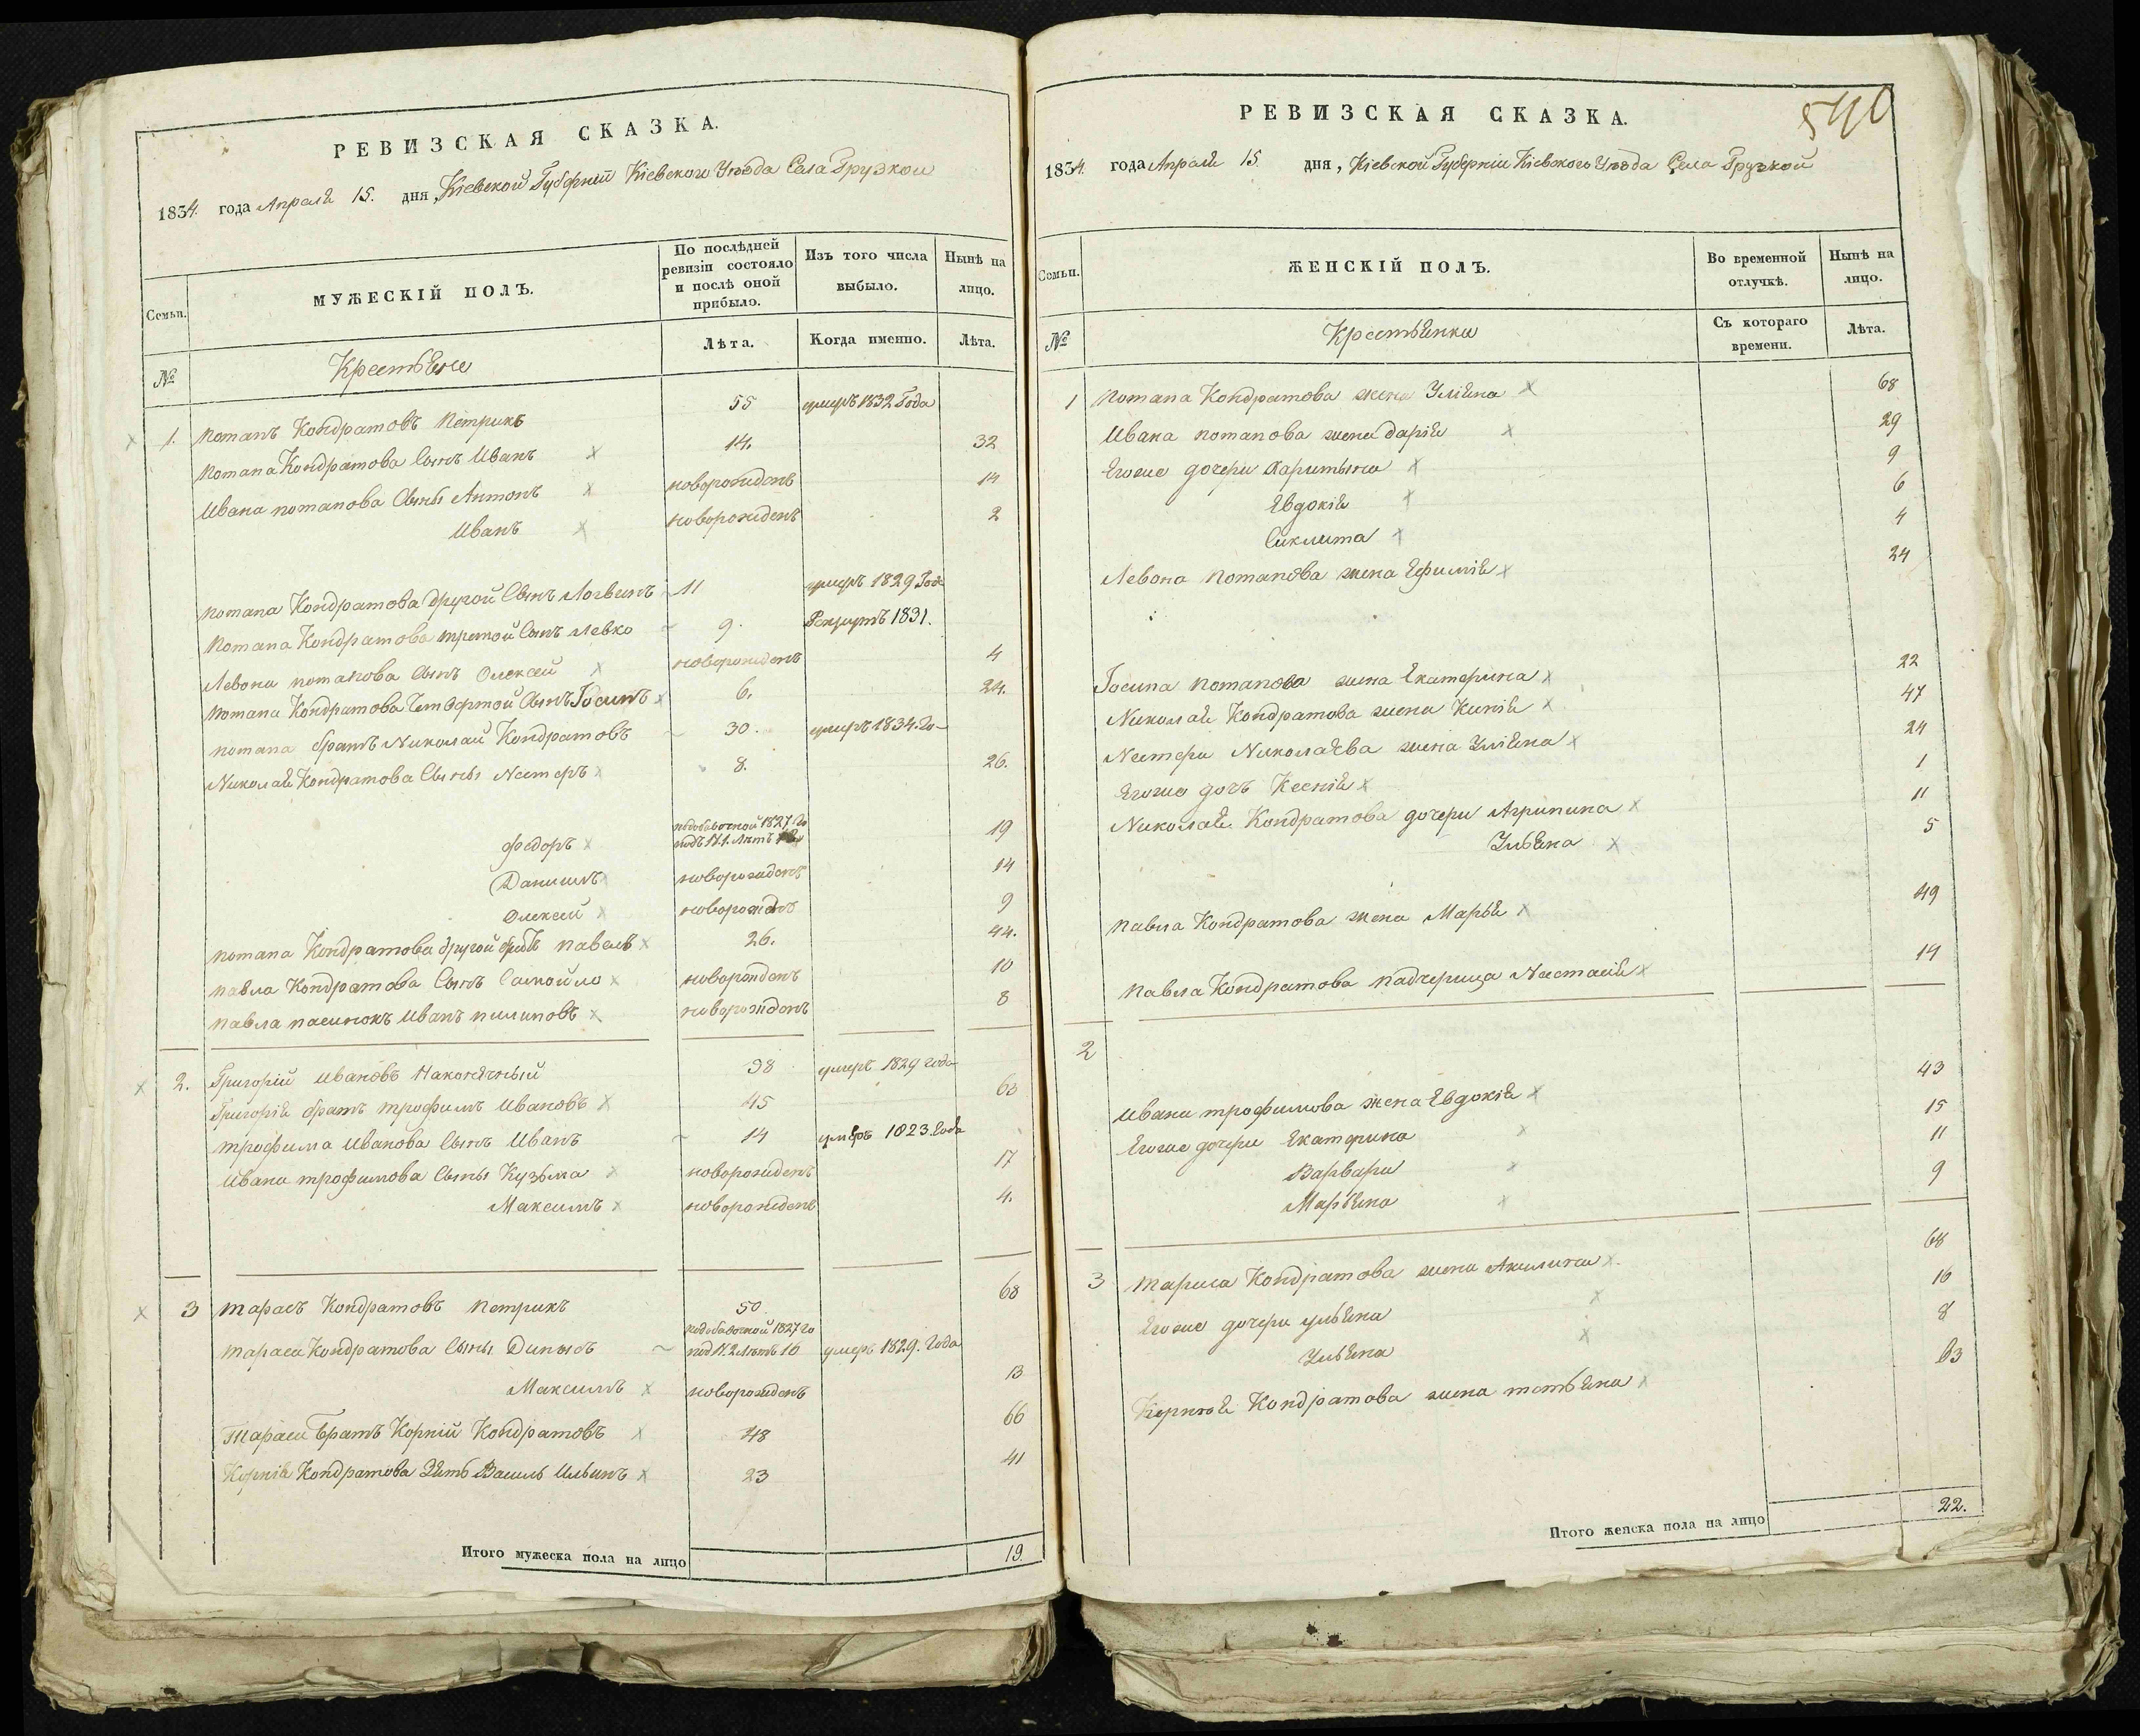 РЕВИЗСКАЯ СКАЗКА.
1834. года Апреля 15. дня, Кіевской Губерніи Кіевского Уезда Села Грузкой
Семьи.
МУЖЕСКІЙ ПОЛЪ.
По послѣдней ревизіи состояло и послѣ оной прибыло.
Изъ того числа выбыло.
Нынѣ на лицо.
№
Крестьяне
Лѣта.
Когда именно.
Лѣта.
1. Потапъ Кондратовъ Петрикъ 55 умеръ 1832 Года
Потапа Кондратова Сынъ Иванъ 14. 32
Ивана потапова Сыны Антонъ новорожденъ 14
Иванъ новорожденъ 2
Потапа Кондратова другой Сынъ Логвинъ 11 умеръ 1829 Года
Потапа Кондратова третой Сынъ Левко 9. Рекрутъ 1831.
Левона потапова Сынъ Олексей новорожденъ 4
Потапа Кондратова Четвертой Сынъ Іосипъ 6. 24.
потапа братъ Николай Кондратовъ 30. умеръ 1834. Го
Николая Кондратова Сыны Нестеръ 8. 26.
Федоръ подобавочной 1827 Го подъ №1. Летъ 19
Данишъ новорожденъ 14
Олексей новорожденъ 9
потапа Кондратова другой братъ павелъ 26. 44.
павла Кондратова Сынъ Самойло новорожденъ 10
Павла пасинокъ Иванъ пилиповъ новорожденъ 8
2. Григорій Ивановъ Наконечный 38 умеръ 1829 года
Григорія братъ трофимъ Ивановъ 45 63
трофима Иванова Сынъ Иванъ 14 умеръ 1823 Года
Ивана трофимова Сыны Кузьма новорожденъ 17
Максимъ новорожденъ 4.
3 тарасъ Кондратовъ Петрикъ 50 68
тараса Кондратова Сыны подобавочной 1827 Го под №2 Летъ 16 умеръ 1829. Года
Максимъ новорожденъ 13
Тараса Братъ Корній Кондратовъ 48 66
Корнія Кондратова Зять Василь Ильинъ 23 41
Итого мужеска пола на лицо 19.
540
РЕВИЗСКАЯ СКАЗКА.
1834. года Апреля 15. дня, Кіевской Губерніи Кіевского Уезда Села Грузкой
Семьи.
ЖЕНСКІЙ ПОЛЪ.
Во временной отлучкѣ.
Нынѣ на лицо.
№
Крестьянки
Съ котораго времени.
Лѣта.
1 Потапа Кондратова жена Уліяна 68
Ивана потапова жена дарія 29
Егоже дочери Харитына 9
Евдокія 6
Сиклита 4
Левона Потапова жена Ефимія 24
Іосипа Потапова жена Екатерина 22
Николая Кондратова жена Кинія 47
Нестера Николаева жена Уліяна 24
Егоже дочь Ксенія 1
Николая Кондратова дочери Агрипина 11
Ульяна 5
павла Кондратова жена Марья 49
Павла Кондратова падчерица Настасія 14
2
Ивана трофимова жена Евдокія 43
Егоже дочери Екатерина 15
Варвара 11
Марьяна 9
3 тараса Кондратова жена Акилина 68
Егоже дочери ульяна 16
Ульяна 8
Корнія Кондратова жена татьяна 63
Итого женска пола на лицо 22.